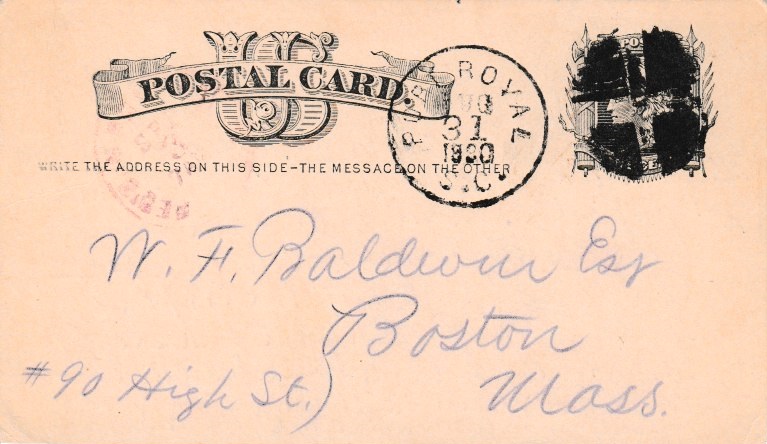 US
POSTAL CARD
WRITE THE ADDRESS ON THIS SIDE-THE MESSAGE ON THE OTHER
PORT ROYAL
AUG
31
1880
S.C.
W. F. Baldwin Esq
Boston
#90 High St.)
Mass.